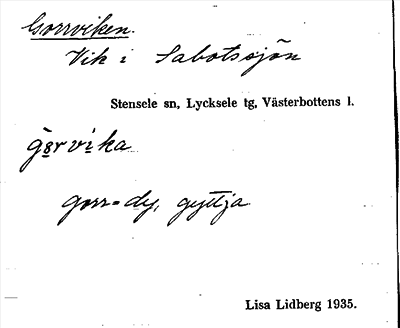 Gorrviken.
Vik i Sabotssjön
Stensele sn, Lycksele tg, Västerbottens l.
gorvika
gorr = dy, gyttja
Lisa Lidberg 1935.